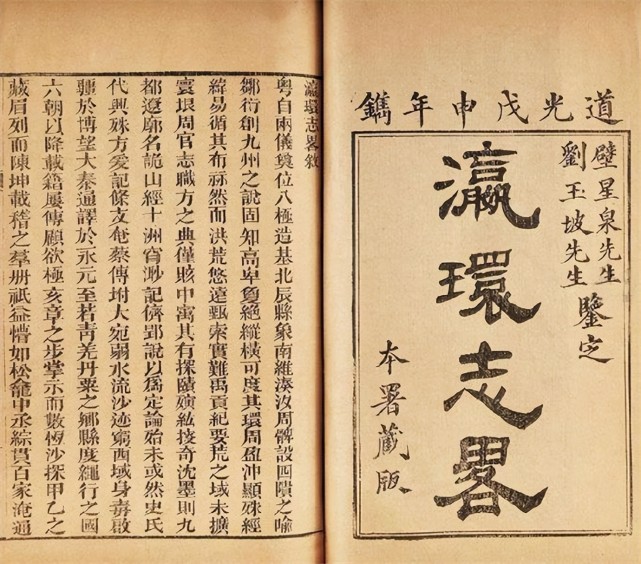 道光戊申年鐫
壁星泉先生
劉玉坡先生
鑒定
瀛環志畧
本署藏版
瀛環志畧敘
粤自兩儀奠位八極造基北辰縣象南維湊周髀設四隤之喻
鄒衍創九州之說固知高卑敻絕縱橫可度其環周盈沖顯殊經
緯易循其布然而洪荒悠遠甄索實難禹貢紀要荒之域未擴
寰垠周官志職方之典僅賅中寓其有探賾紘技奇沈墨則九
都遼廓名詭山經十洲窅渺記儕郢說以爲定論殆未或然史氏
代興殊方爰記條支奄蔡傳坿大宛弱水流沙迹窮西域身毒啟
疆於博望大秦通譯於永元至若靑羌丹粟之鄉縣度繩行之國
六朝以降載籍屢傳顧欲極亥章之步掌示而數恆沙探甲乙之
藏眉列而陳坤載稽之羣册祗益懵如松龕中丞綜貫百家淹通